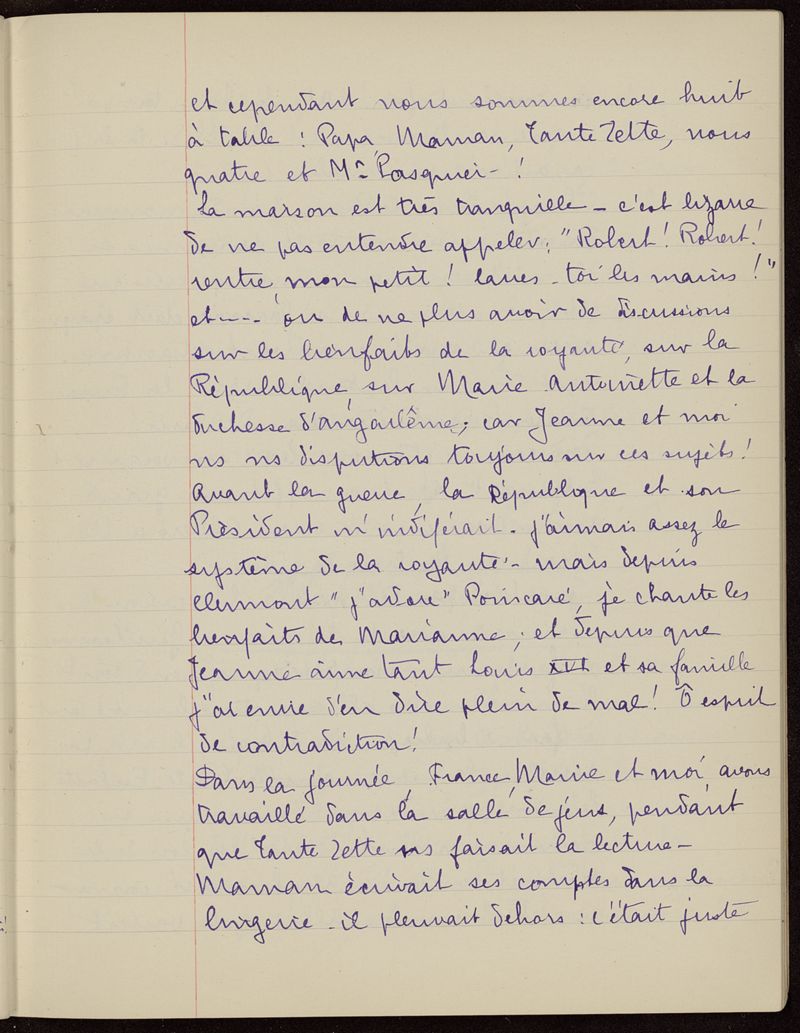 et cependant nous sommes encore huit
à table : Papa, Maman, Tante Zette, nous
quatre et Mr Pasquier - !
La maison est très tranquille - c'est bizarre
de ne pas entendre appeler : "Robert ! Robert !
rentre, mon petit ! laves-toi les mains !"
et --- ou de ne plus avoir de discussions
sur les bienfaits de la royauté, sur la
République, sur Marie Antoinette et la
duchesse d'angoulême ; car Jeanne et moi
ns ns disputions toujours sur ces sujets !
Avant la guerre, la République et son
Président m'indiférait - j'aimais assez le
système de la royauté - mais depuis
Clermont "j'adore" Poincaré, je chante les
bienfaits de Marianne ; et depuis que
Jeanne aime tant Louis XVI et sa famille
j'ai envie d'en dire plein de mal ! Ô esprit
de contradiction !
Dans la journée, France, Marie et moi, avons
travaillé dans la salle de jeux, pendant
que Tante Zette ns faisait la lecture -
Maman écrivait ses comptes dans la
lingerie - il pleuvait dehors : c'était juste